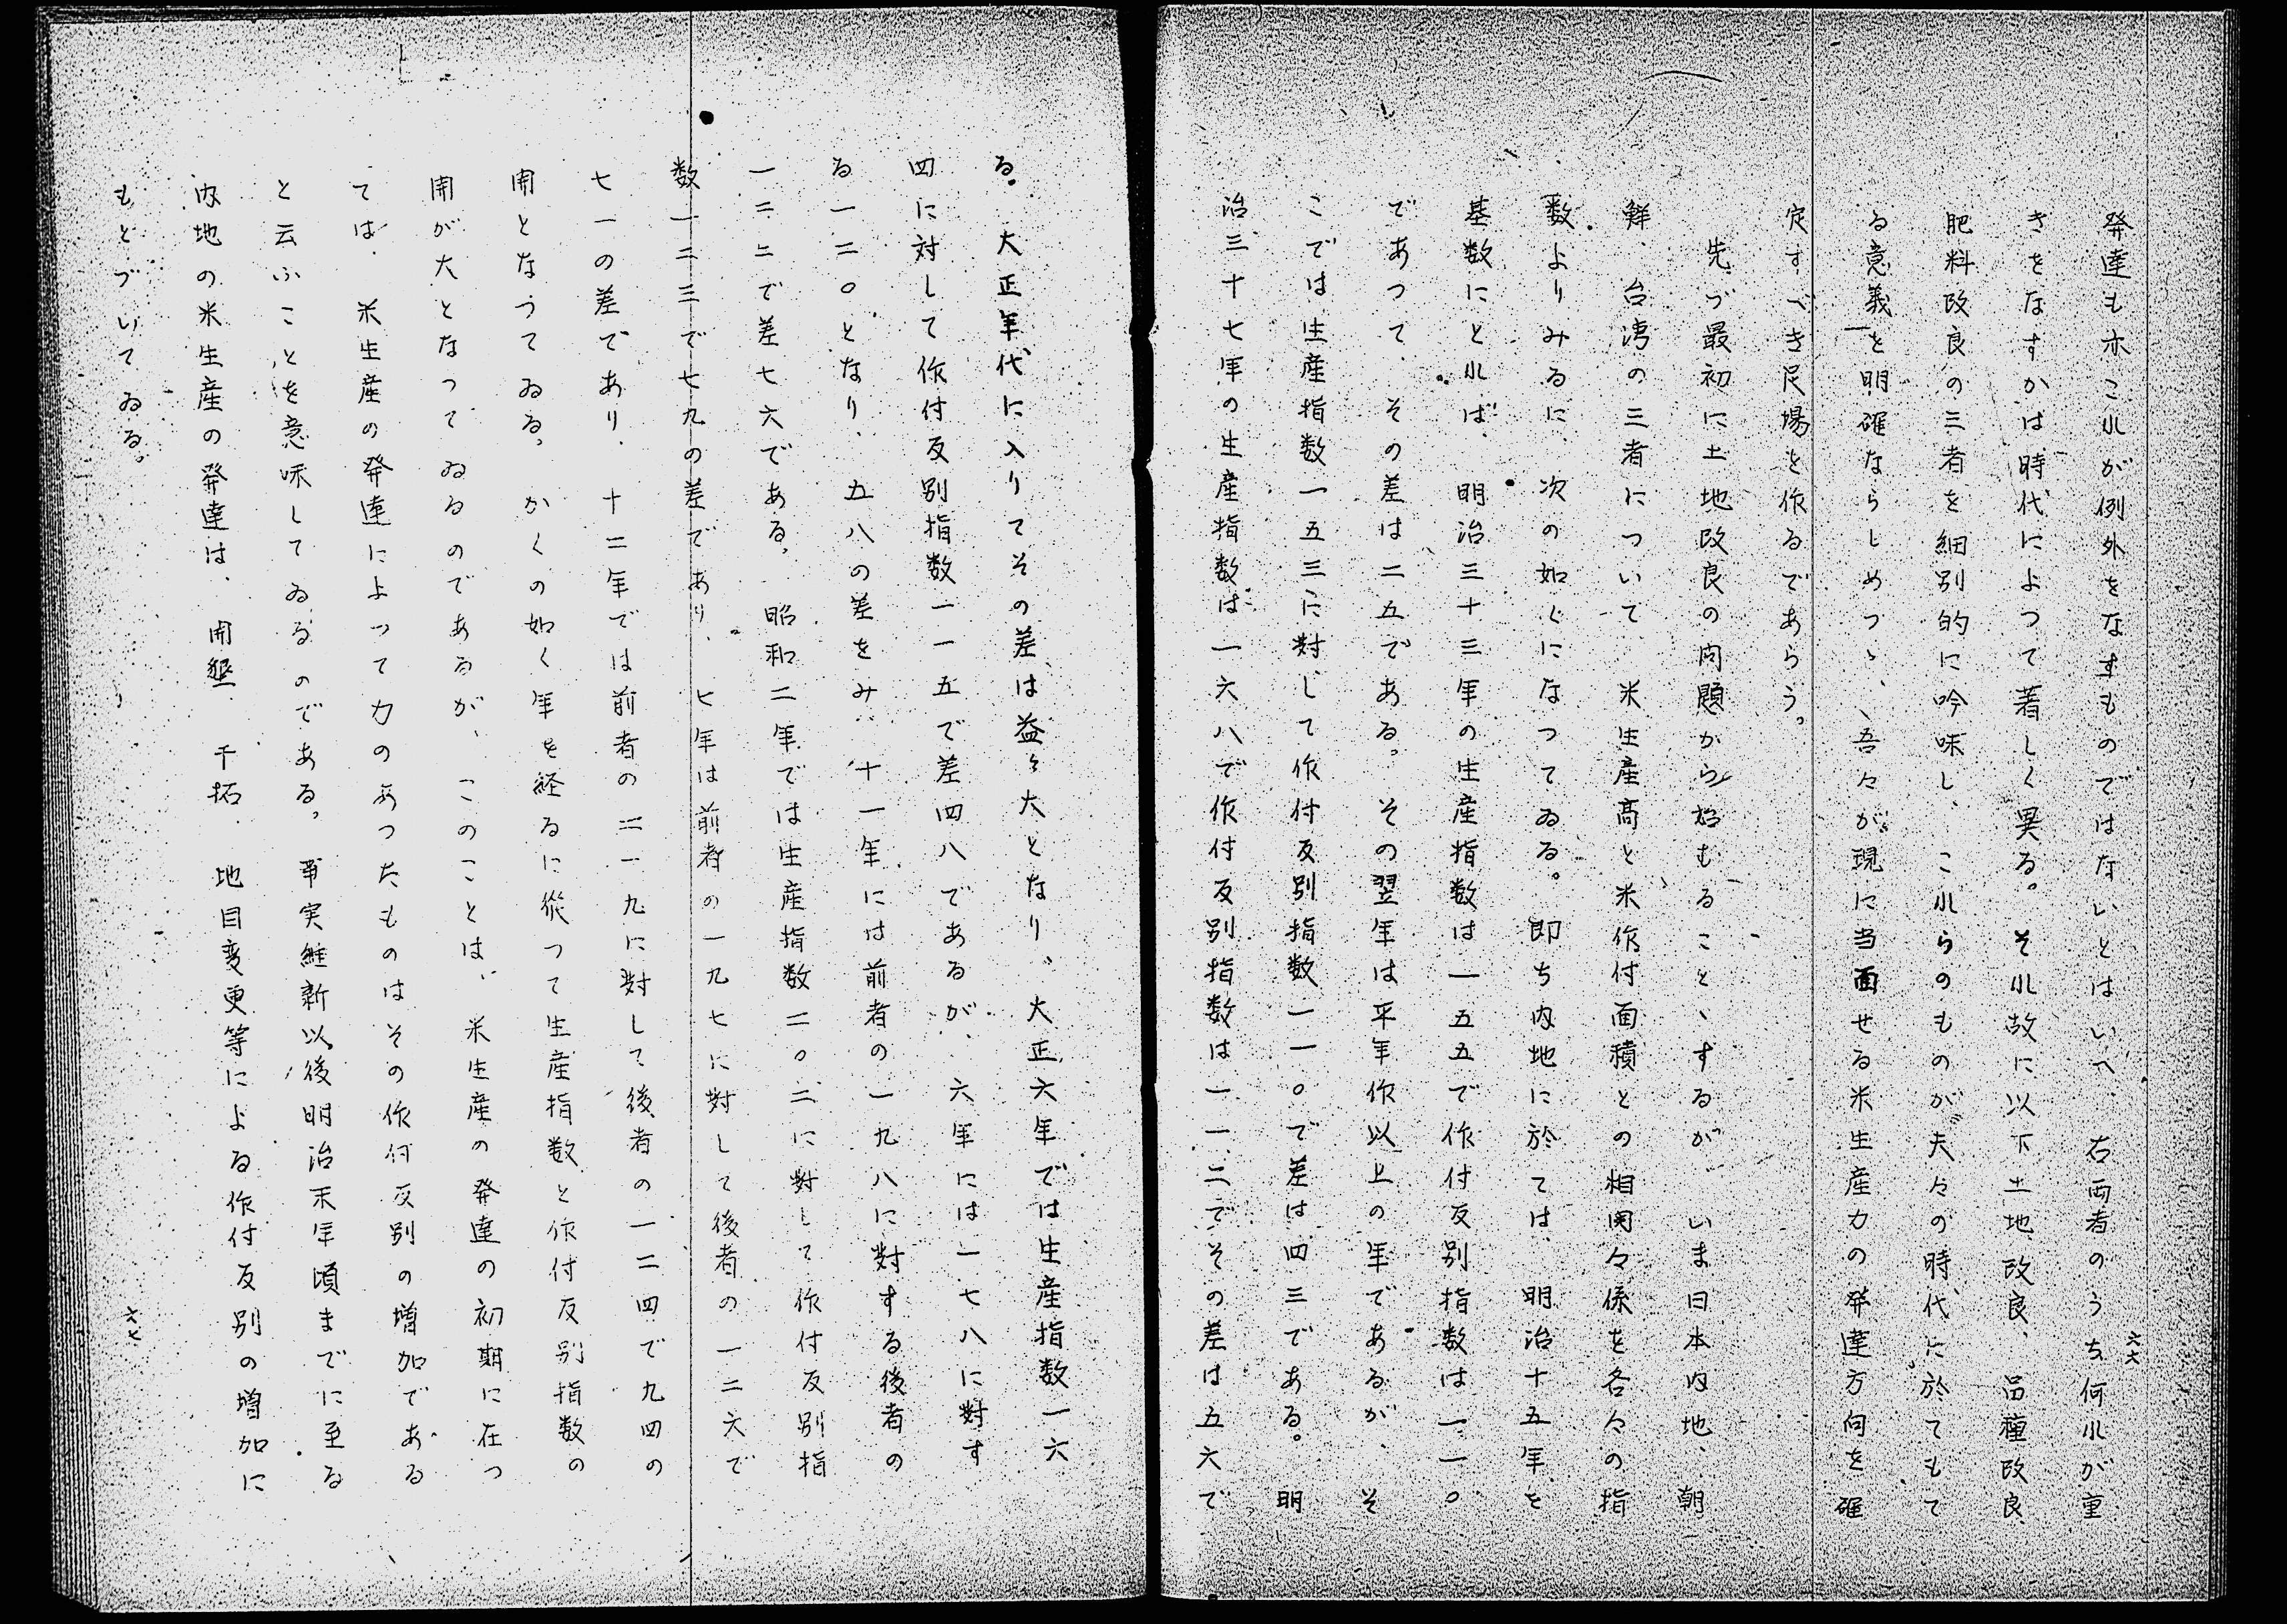 六六
発達も亦これが例外をなすものではないとはいへ、右両者のうち何れが重
きをなすかは時代によつて着しく異る。それ故に以下土地改良、品種改良
肥料改良の三者を細別的に吟味し、これらのものが夫々の時代に於てもて
る意義を明確ならしめつゝ、吾々が現に当面せる米生産力の発達方向を確
定すべき足場を作るであらう。
先づ最初に土地改良の問題から始むることゝするが、いま日本内地、朝
鮮、台湾の三者について、米生産高と米作付面積との相関々係を各々の指
数よりみるに、次の如くになつてゐる。即ち内地に於ては、明治十五年を
基数にとれば、明治三十三年の生産指数は一五五で作付反別指数は一一〇
であつて、その差は二五である。その翌年は平年作以上の年であるが、そ
こでは生産指数一五三に対して作付反別指数一一〇で差は四三である。明
治三十七年の生産指数は一六八で作付反別指数は一一二でその差は五六で
る。大正年代に入りてその差は益々大となり、大正六年では生産指数一六
四に対して作付反別指数一一五で差四八であるが、六年には一七八に対す
る一二〇となり、五八の差をみ、十一年には前者の一九八に対する後者の
一二二で差七六である。昭和二年では生産指数二〇二に対して作付反別指
数一二三で七九の差であり、七年は前者の一九七に対して後者の一二六で
七一の差であり、十二年では前者の二一九に対して後者の一二四で九四の
開となつてゐる。かくの如く年を経るに従つて生産指数と作付反別指数の
開が大となつてゐるのであるが、このことは、米生産の発達の初期に在つ
ては、米生産の発達によつて力のあつたものはその作付反別の増加である
と云ふことを意味してゐるのである。事実維新以後明治末年頃までに至る
内地の米生産の発達は、開墾、干拓、地目変更等による作付反別の増加に
もとづいてゐる。
六七